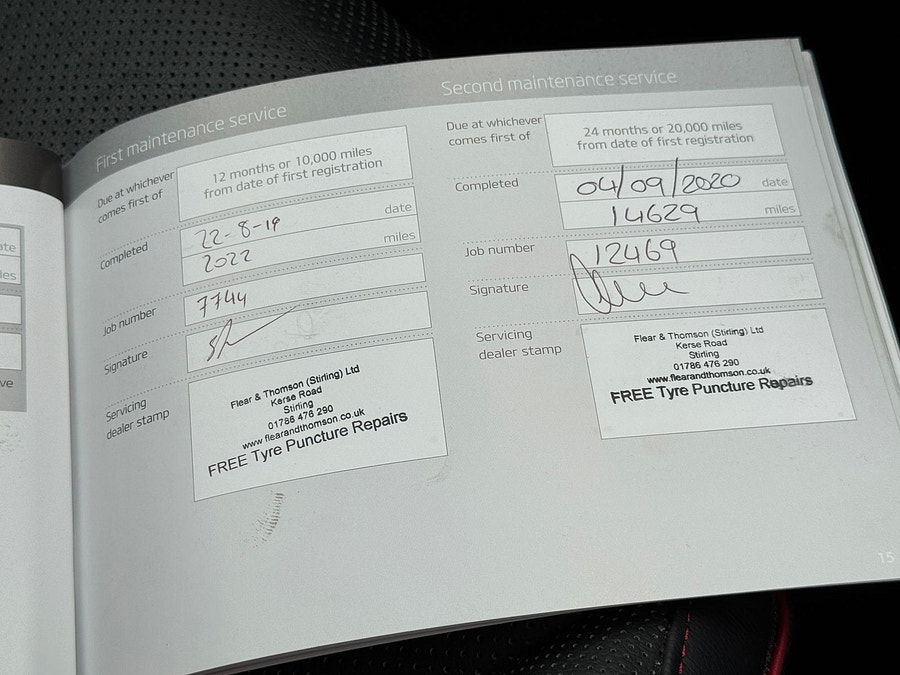 First maintenance service
Due at whichever
comes first of
12 months or 10,000 miles
from date of first registration
Completed
22-8-19 date
2022 miles
Job number
7744
Signature
Servicing
dealer stamp
Flear & Thomson (Stirling) Ltd
Kerse Road
Stirling
01786 476 290
www.flearandthomson.co.uk
FREE Tyre Puncture Repairs
Second maintenance service
Due at whichever
comes first of
24 months or 20,000 miles
from date of first registration
Completed
04/09/2020 date
14629 miles
Job number
12469
Signature
Servicing
dealer stamp
Flear & Thomson (Stirling) Ltd
Kerse Road
Stirling
01786 476 290
www.flearandthomson.co.uk
FREE Tyre Puncture Repairs
15
ate
les
ve